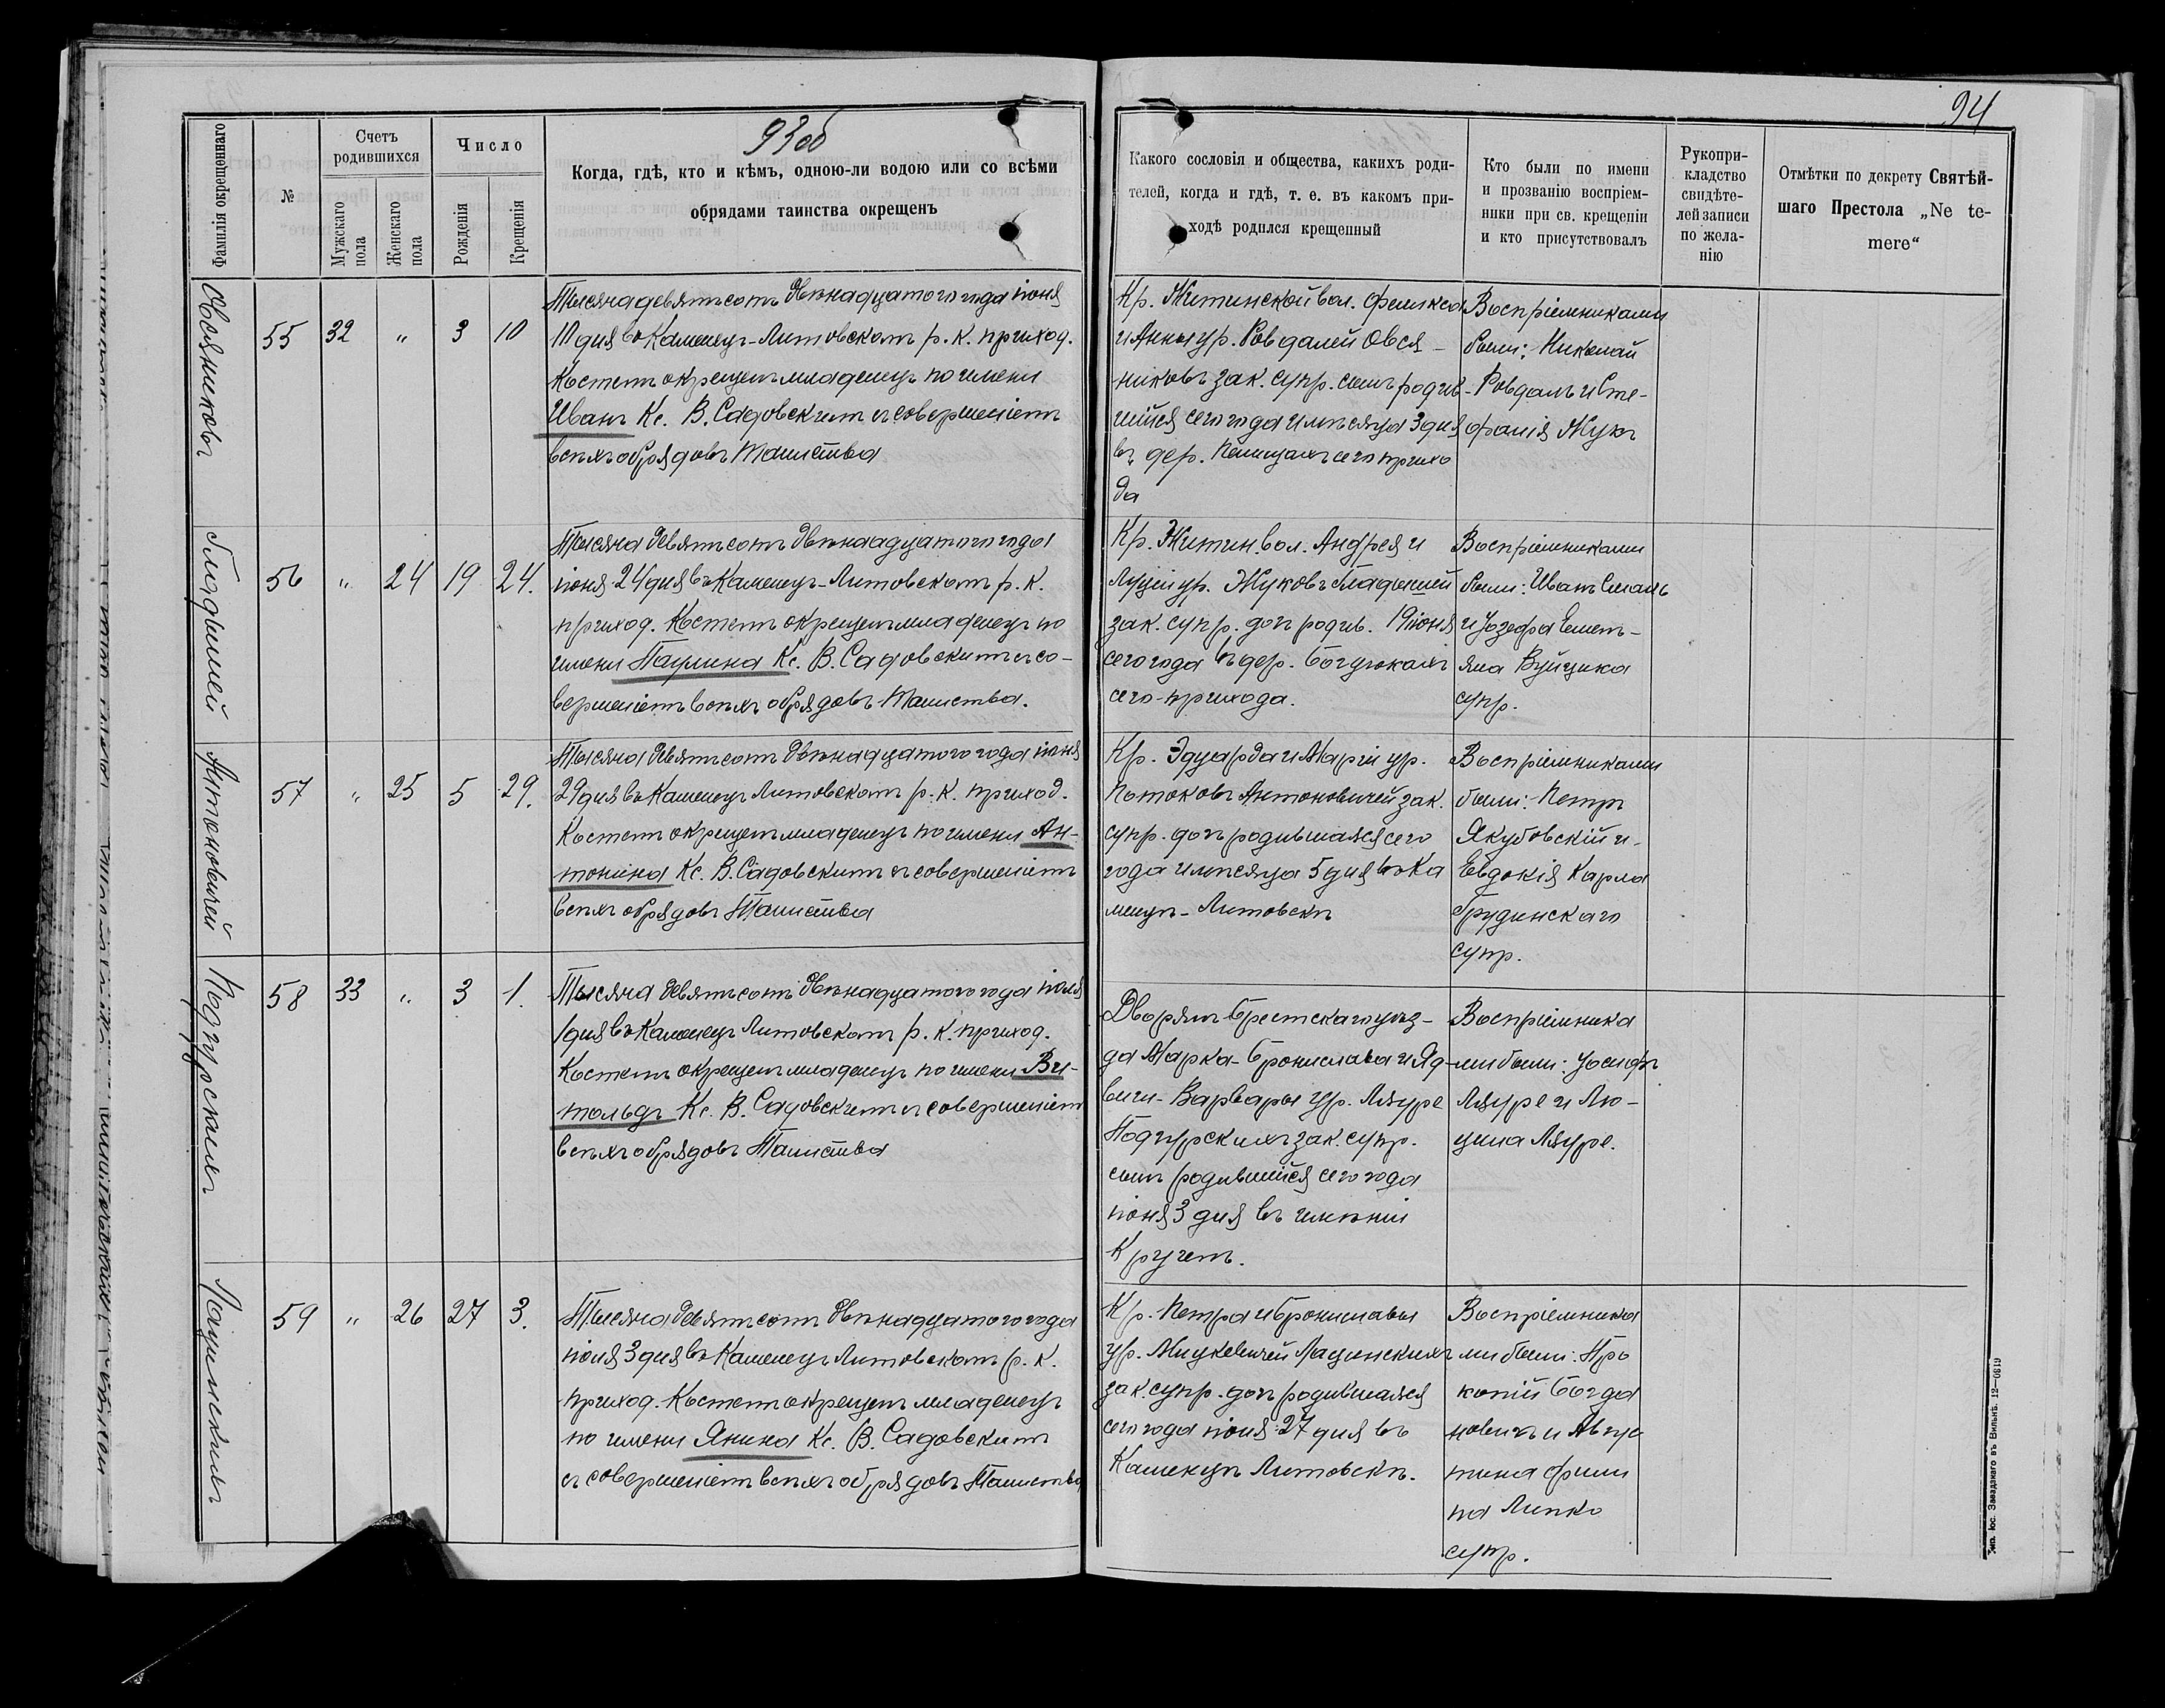 93об
94
Фамилія окрещеннаго
№
Счетъ
родившихся
Мужскаго
пола
Женскаго
пола
Число
Рожденія
Крещенія
Когда, гдѣ, кто и кѣмъ, одною-ли водою или со всѣми
обрядами таинства окрещенъ
Какого сословія и общества, какихъ роди-
телей, когда и гдѣ, т. е. въ какомъ при-
ходѣ родился крещенный
Кто были по имени
и прозванію воспріем-
ники при св. крещеніи
и кто присутствовалъ
Рукопри-
кладство
свидѣте-
лей записи
по жела-
нію
Отмѣтки по декрету Святѣй-
шаго Престола „Ne te-
mere“
Овсяниковъ
55 32 „ 3 10
Тысяча девятьсотъ двѣнадцатого года іюня
10 дня въ Каменец-Литовскомъ р. к. приход.
Костелѣ окрещенъ младенецъ по имени
Иванъ Кс. В. Садовскимъ съ совершеніемъ
всѣхъ обрядовъ Таинства
Кр. Житинской вол. Феликса
и Анны ур. Ровдалей Овся-
никовъ зак. супр. сынъ родив-
шійся сего года и мѣсяца 3 дня
въ дер. Пелищахъ сего прихо
да
Воспріемниками
были: Николай
Ровдалъ и Сте-
фанія Жукъ
Гладышей
56 „ 24 19 24.
Тысяча девятьсотъ двѣнаадцатого года
іюня 24 дня въ Каменец-Литовскомъ р. к.
приход. Костелѣ окрещенъ младенецъ по
имени Паулина Кс. В. Садовскимъ съ со-
вершеніемъ всѣхъ обрядовъ Таинства.
Кр. Житин. вол. Андрея и
Луціи ур. Жуковъ Гладышей
зак. супр. дочь родив. 19 іюня
сего года въ дер. Богдюкахъ
сего-прихода.
Воспріемниками
были: Иванъ
и Юзефа
Вуйцика
супр.
Антоновичей
57 „ 25 5 29.
Тысяча девятьсотъ двѣнадцатого года іюня
29 дня въ Каменецъ Литовскомъ р. к. приход.
Костелѣ окрещенъ младенецъ по имени Ан-
тонина Кс. В. Садовскимъ съ совершеніемъ
всѣхъ обрядовъ Таинства
Кр. Эдуарда и Маріи ур.
Потоковъ Антоновичей зак.
супр. дочь родившаяся сего
года и мѣсяца 5 дня въ Ка
менцѣ-Литовскѣ
Воспріемниками
были: Петръ
Якубовскій и-
Евдокія Карла
Грудинскаго
супр.
Подгурскихъ
58 33 „ 3 1.
Тысяча девятьсотъ двѣнадцатого года іюля
1 дня въ Каменецъ Литовскомъ р. к. приход.
Костелѣ окрещенъ младенецъ по имени Ви-
тольдъ Кс. В. Садовскимъ съ совершеніемъ
всѣхъ обрядовъ Таинства
Дворянъ Брестскаго уѣз-
да Марка-Бронислава и Яд-
виги-Варвары ур. Лядуре
Подгурскихъ зак. супр.
сынъ родившійся сего года
іюня 3 дня въ имѣніи
Кругель.
Воспріемника
ми были: Іосифъ
и Лю-
цина
Лащинскихъ
59 „ 26 27 3.
Тысяча девятьсотъ двѣнадцатого года
іюля 3 дня въ Каменецъ Литовскомъ р. к.
приход. Костелѣ окрещенъ младенецъ
по имени Янина Кс. В. Садовскимъ
съ совершеніемъ всѣхъ обрядовъ Таинства
Кр. Петра и Брониславы
ур. Мицкевичей Лащинскихъ
зак. супр. дочь родившаяся
сего года іюня 27 дня въ
Каменцѣ Литовскѣ.
Воспріемника
ми были: Про
копій Богда
новичъ и Авгус
тина Филип
па Липко
супр.
Тип. Іос. Завадзкаго въ Вильнѣ. 12—0619